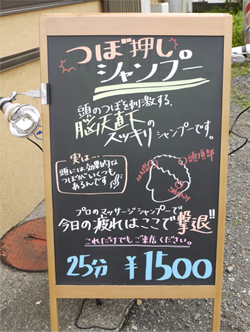 つぼ押し
シャンプー
頭のつぼを刺激する、
脳天直下の
スッキリシャンプーです。
実は…
頭には効果的な
つぼがいくつも
あるんです
頭頂部
プロのマッサージシャンプーで
今日の疲れはここで撃退!!
これだけでもご来店ください。
25分 ¥1500